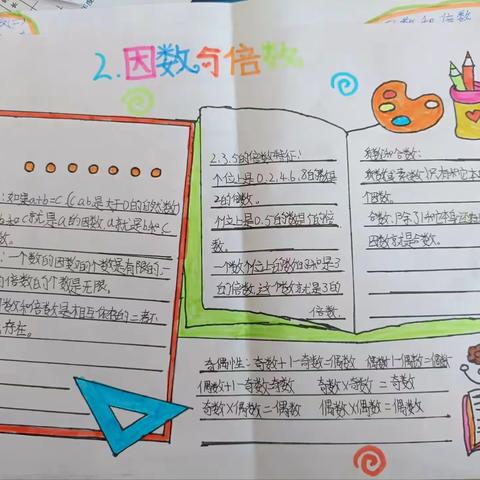 和倍数
2.因数与倍数
:如果a÷b=c(c a b是大于0的自然数)
b和c就是a的因数 a就是b和c
数。
:一个数的因数的个数是有限的,
倍数的个数是无限。
数和倍数是相互依存的二者不
存在。
2.3.5的倍数特征:
个位上是0.2.4.6.8的数是
2的倍数。
个位上是0.5的数是5的倍
数。
一个数个位上的数的和是3
的倍数,这个数就是3的
倍数.
质数和合数:
个因数。
合数:除了1和本身还有
因数就是合数。
奇偶性:奇数+1-奇数=偶数 偶数1-偶数=偶数
偶数+1-奇数=奇数 奇数×奇数=奇数
奇数×偶数=偶数 偶数×偶数=偶数